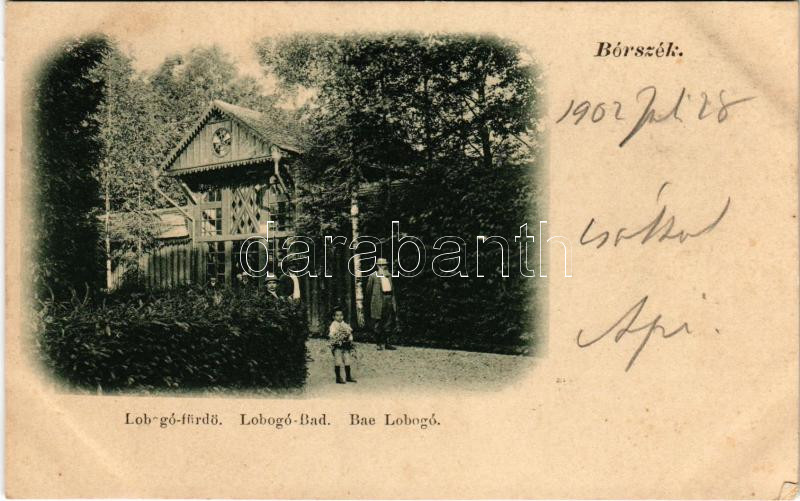 Bórszék.
1902 Juli 28
csókol
Api.
darabanth
Lobogó-fürdö. Lobogó-Bad. Bae Lobogó.